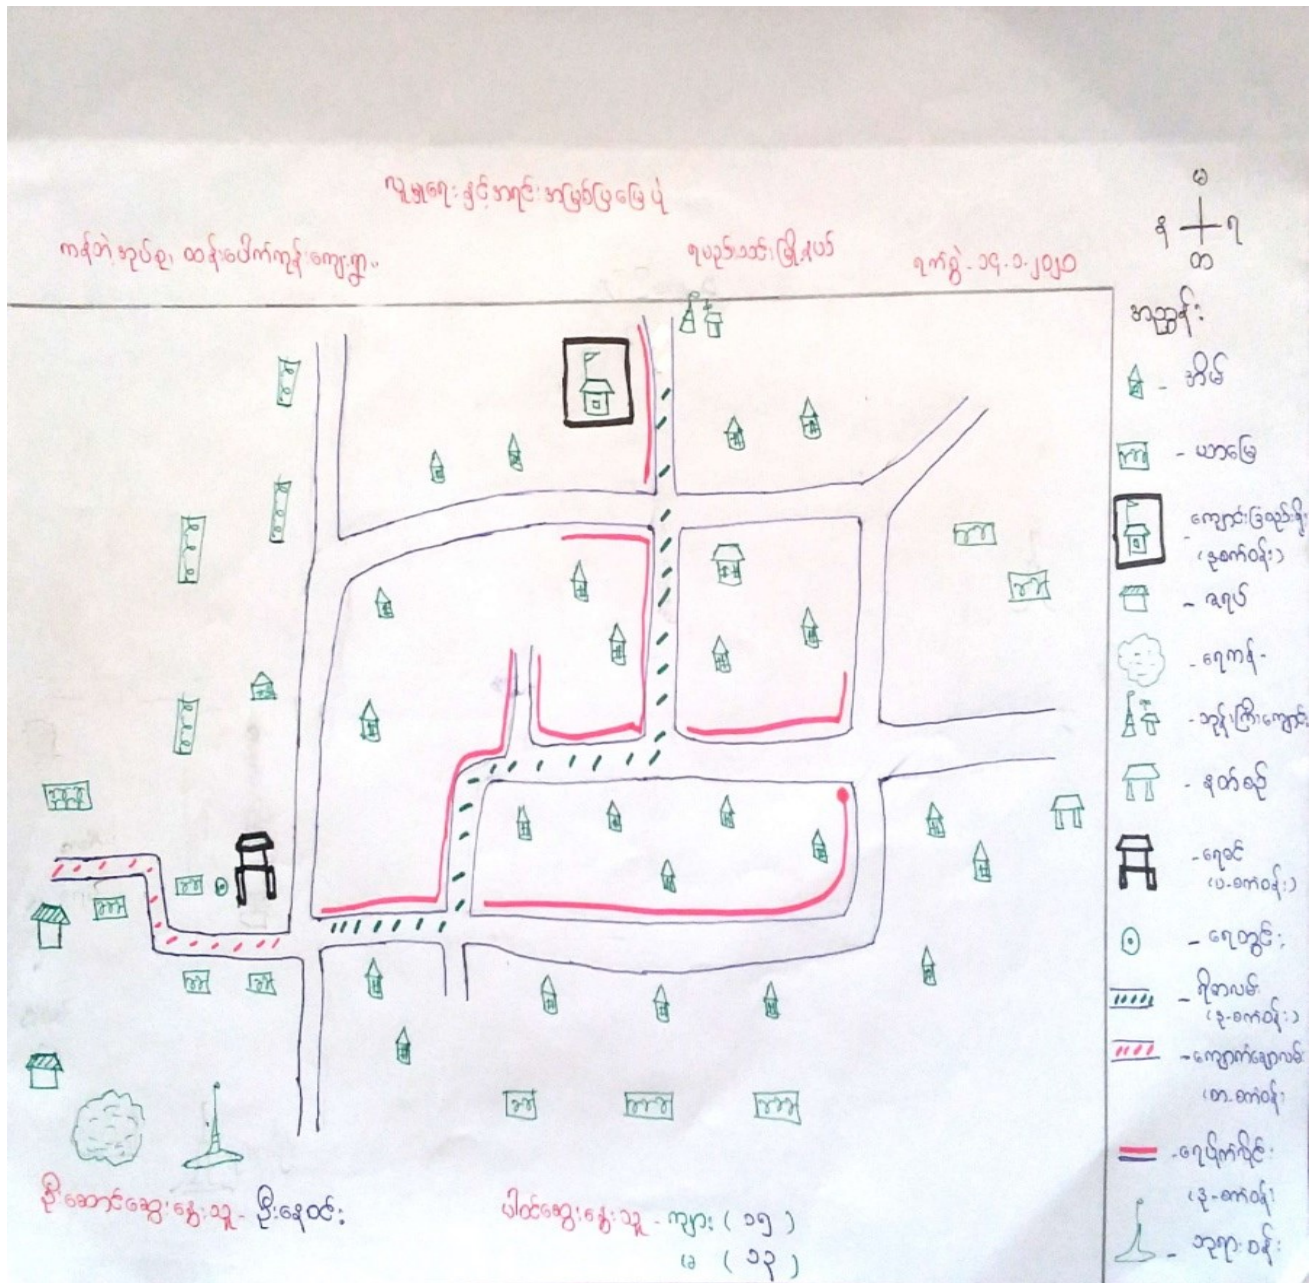 လူမှုရေးနှင့်အရင်းအမြစ်ပြမြေပုံ
ကန်ဘဲ့အုပ်စု၊ ထန်းပေါက်ကုန်းကျေးရွာ။
ရမည်းသင်းမြို့နယ်
ရက်စွဲ - ၁၄.၁.၂၀၂၀
မ
န
ရ
တ
အညွှန်း
- အိမ်
- ယာမြေ
- ကျောင်းခြံစည်းရိုး
(ဒု-စက်ဝန်း)
- ဇရပ်
- ရေကန် -
- ဘုန်းကြီးကျောင်း
- နတ်စင်
- ရေစင်
(ပ-စက်ဝန်း)
- ရေတွင်း
- ရိုးစာလမ်း
(ဒု-စက်ဝန်း)
- ကျောက်ချောလမ်း
(စာ-စက်ဝန်း)
- ရေပိုက်လိုင်း
(ဒု-စက်ဝန်း)
- ဘုရားစွန်း
ဦးဆောင်ဆွေးနွေးသူ - ဦးနေဝင်း
ပါဝင်ဆွေးနွေးသူ - ကျား ( ၁၅ )
မ ( ၁၃ )